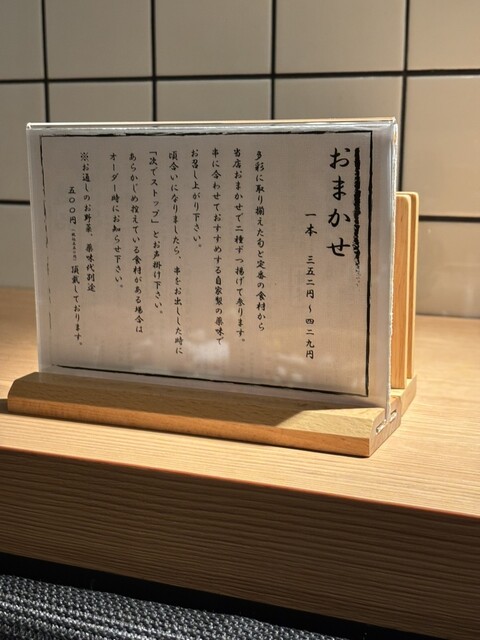 おまかせ
一本 三五二円〜四二九円
多彩に取り揃えた旬と定番の食材から
当店おまかせで二種ずつ揚げて参ります。
串に合わせておすすめする自家製の薬味で
お召し上がり下さい。
頃合いになりましたら、串をお出しした時に
「次でストップ」とお声掛け下さい。
あらかじめ控えている食材がある場合は
オーダー時にお知らせ下さい。
※お通しのお野菜、薬味代別途
五〇〇円 頂戴しております。